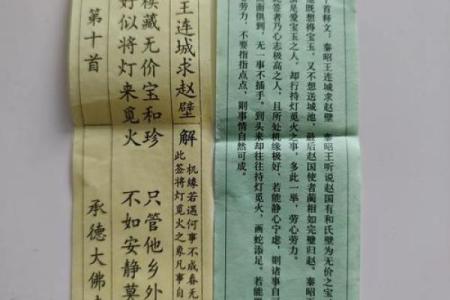 十首释文：秦昭王连城求赵壁 秦昭王听说赵国有和氏壁为无价之宝
既想得宝玉，又不想送城池，最后赵国使者蔺相如完壁归赵。秦
是爱宝玉之人，却行持灯觅火之事，多此一举，劳心劳力。
签者乃心志极高之人，且所处机缘极好，若能静心宁虑，则诸事自
面俱到，无一事不插手，到头来却往往持灯觅火，画蛇添足。若能
劳力，不要指指点点，则事情自然可成。
王连城求赵壁 解 机缘若遇何事不成春无
此签将灯觅火之象凡事自
藏无价宝和珍 只管他乡外
好似将灯来觅火 不如安静莫
第十首 承德大佛